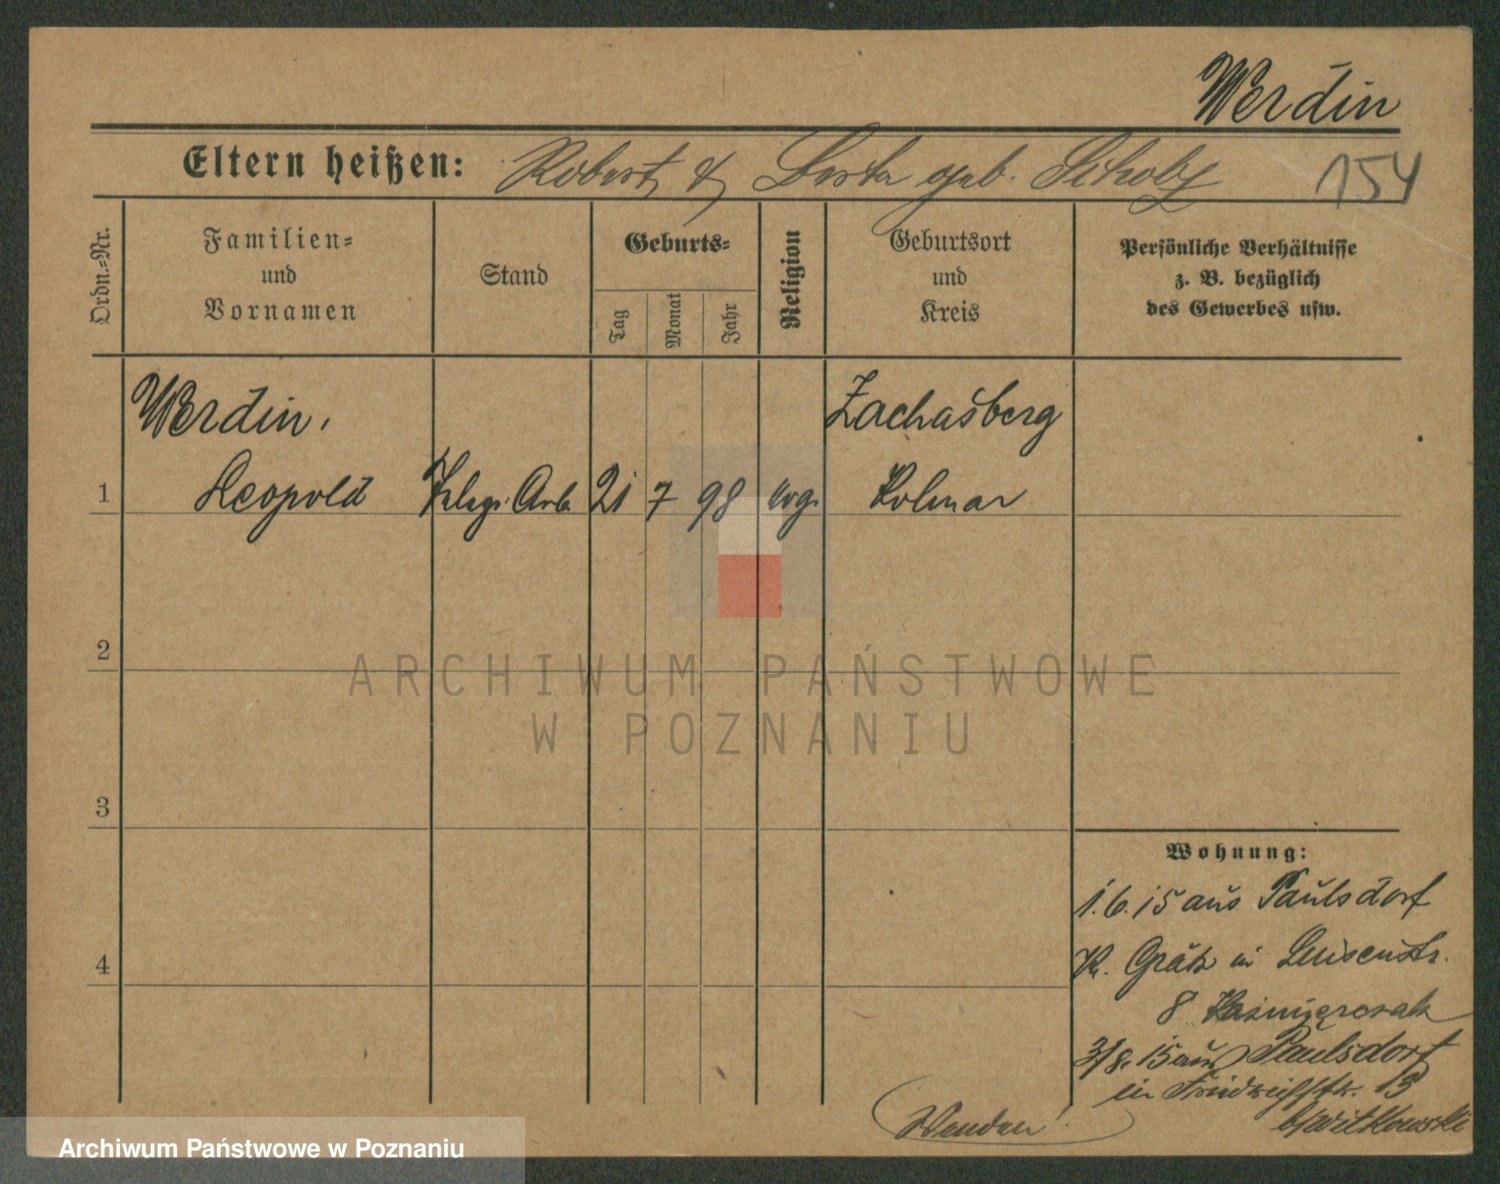 Werdin
Eltern heißen: Robert & Berta geb.
154
Ordn.=Nr.
Familien=
und
Vornamen
Stand
Geburts=
Tag
Monat
Jahr
Religion
Geburtsort
und
Kreis
Persönliche Verhältnisse
z. B. bezüglich
des Gewerbes usw.
Werdin,
Zachasberg
1 Leopold Telegr. Arb. 21 7 98 evg. Kolmar
2
ARCHIWUM PAŃSTWOWE
W POZNANIU
3
Wohnung:
1.6.15 aus Paulsdorf
4
Kr. Grätz in Luisenstr.
8 Kaźmierczak
3/8. 15 aus Paulsdorf
in Friedrichstr. 13
b/Witkowski
Wenden!
Archiwum Państwowe w Poznaniu